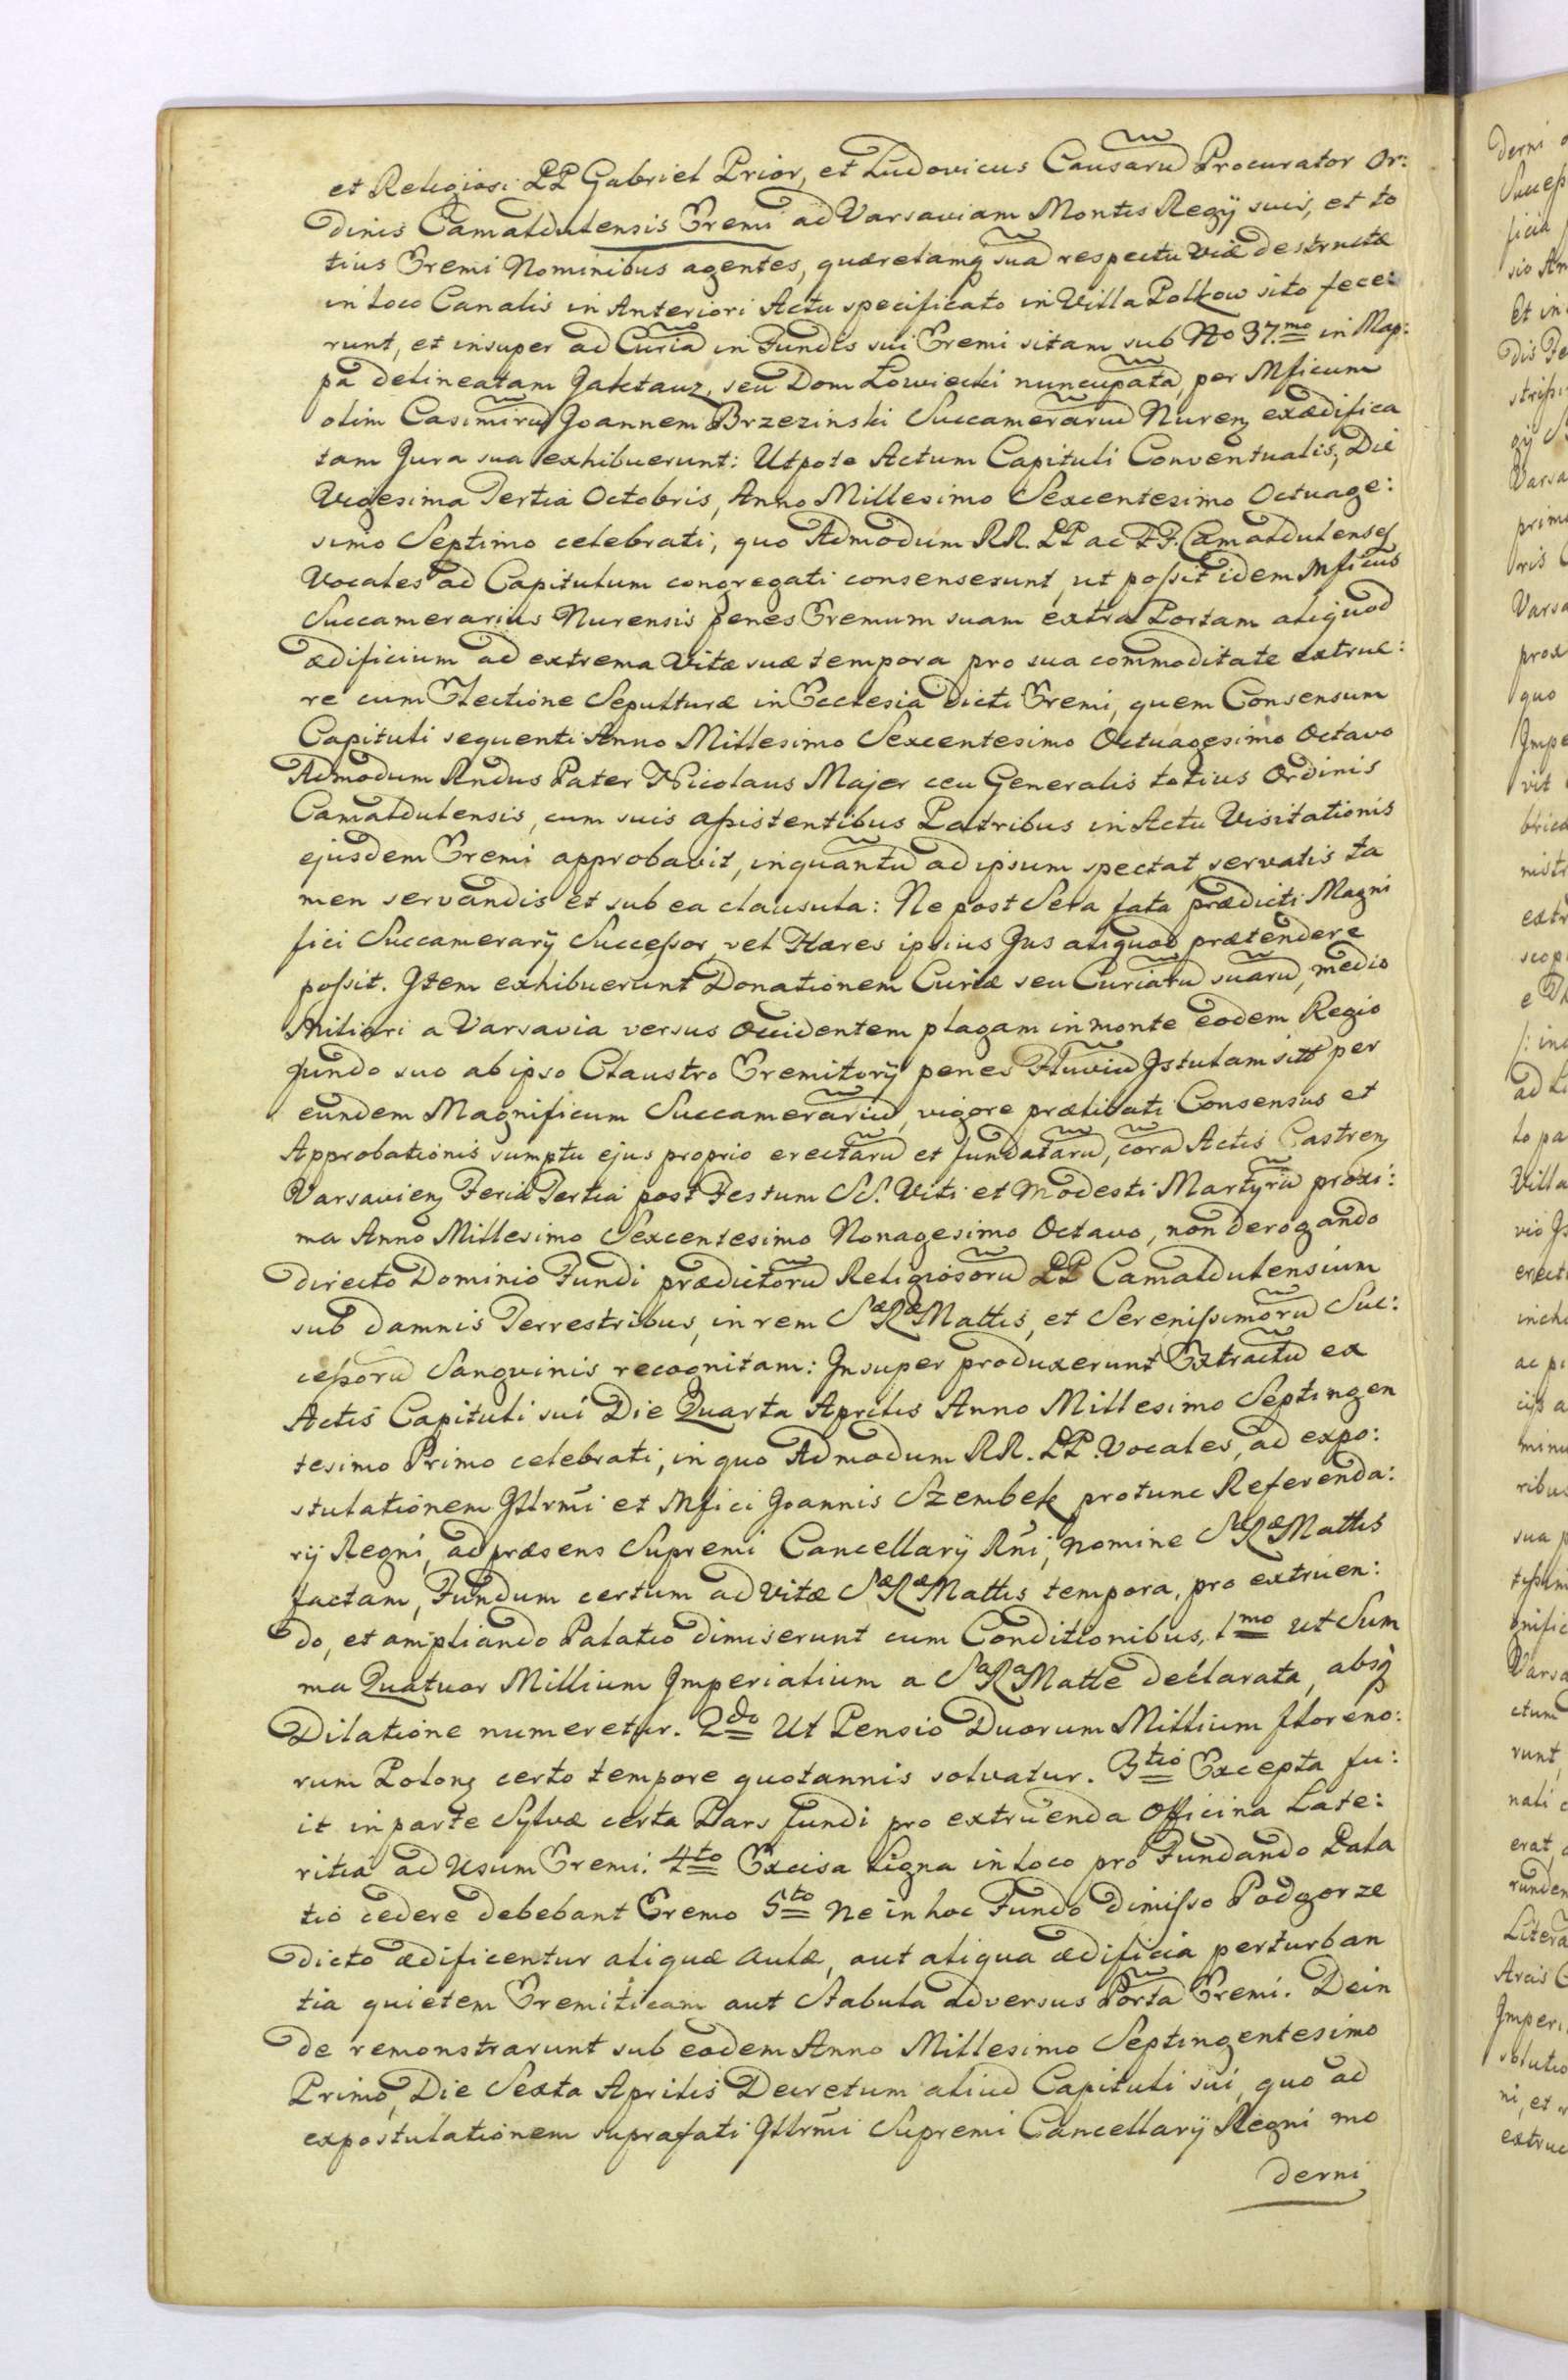 et Religiosi PP Gabriel Prior, et Ludovicus Causarũ Procurator Or:
dinis Camaldulensis Eremi ad Varsaviam Montis Regÿ suis, et to
tius Eremi Nominibus agentes, quærelamq̃ suã respectu viæ destructæ
in loco Canalis in Anteriori Actu specificato in Villa Polkow sito fece:
runt, et insuper ad Curiã in Fundis sui Eremi sitam sub No 37.mo in Map:
pa delineatam Jaktauz, seu Dom Lowiecki nuncupatã, per Mficum
olim Casimirũ Joannem Brzezinski Succamerarium Nurenz exædifica
tam Jura sua exhibuerunt: Utpote Actum Capituli Conventualis, Die
Vigesima Tertia Octobris, Anno Millesimo Sexcentesimo Octuage:
simo Septimo celebrati, quo Admodum RR. PP ac FF. Camaldulenses
Vocales ad Capitulum congregati consenserunt, ut possit idem Mficus
Succamerarius Nurensis penes Eremum suam extra Portam aliquod
ædificium ad extrema Vitæ suæ tempora pro sua commoditate extrue:
re cum Electione Sepulturæ in Ecclesia dicti Eremi, quem Consensum
Capituli sequenti Anno Millesimo Sexcentesimo Octuagesimo Octavo
Admodum Rndus Pater Nicolaus Majer ceu Generalis totius Ordinis
Camaldulensis, cum suis assistentibus Patribus in Actu Visitationis
ejusdem Eremi approbavit, inquantũ ad ipsum spectat, servatis ta
men servandis et sub ea clausula: Ne post Sera fata prædicti Magni
fici Succamerarÿ Successor, vel Hæres ipsius Jus aliquod prætendere
possit. Item exhibuerunt Donationem Curiæ seu Curiarũ suarũ, medio
Miliari a Varsavia versus Occidentem plagam in monte eodem Regio
fundo suo ab ipso Claustro Eremitorÿ penes Fluviũ Istulam sitt per
eundem Magnificum Succamerariũ, vigore prælibati Consensus et
Approbationis sumptu ejus proprio erectarũ et fundatarũ, corã Actis Castrenz
Varsavienz Feria Tertia post Festum SS. Viti et Modesti Martyrũ proxi:
ma Anno Millesimo Sexcentesimo Nonagesimo Octavo, non derogando
directo Dominio Fundi prædictorũ Religiosorũ PP Camaldulensium
sub damnis Terrestribus, in rem SæRæMattis, et Serenissimorũ Suc:
cessorũ Sangvinis recognitam: Insuper produxerunt Extractũ ex
Actis Capituli sui Die Quarta Aprilis Anno Millesimo Septingen
tesimo Primo celebrati, in quo Admodum RR. PP. Vocales, ad expo:
stulationem Illrmi et Mfici Joannis Szembek protunc Referenda:
rÿ Regni, ad præsens Supremi Cancellarÿ Rni, nomine SæRæMattis
factam, Fundum certum ad vitæ SæRæMattis tempora, pro extruen:
do, et ampliando Palatio dimiserunt cum Conditionibus, 1mo ut Sum
ma Quatuor Millium Imperialium a SaRaMatte declarata, absq̃
Dilatione numeretur. 2do Ut Pensio Duorum Millium floreno:
rum Polonz certo tempore quotannis solvatur. 3tio Excepta fu:
it in parte Sylvæ certa Pars fundi pro extruenda Officina Late:
ritia ad Usum Eremi. 4to Excisa Ligna in loco pro Fundando Pala
tio cedere debebant Eremo 5to Ne in hoc Fundo dimisso Podgorze
dicto ædificentur aliquæ Aulæ, aut aliqua ædificia perturban
tia quietem Eremiticam aut Stabula adversus Portã Eremi. Dein
de remonstrarunt sub eodem Anno Millesimo Septingentesimo
Primo, Die Sexta Aprilis Decretum aliud Capituli sui, quo ad
expostulationem suprafati Illrmi Supremi Cancellarÿ Regni mo
derni